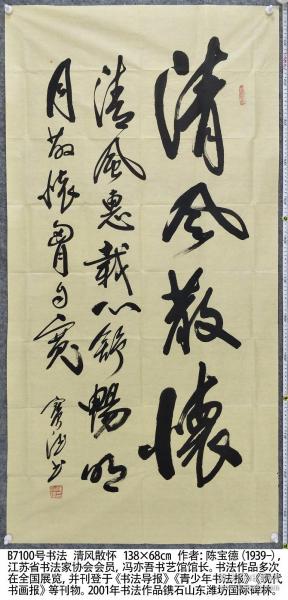 清风散怀
清风惠载心舒畅明
月散怀胸自宽
宝德书
B7100号书法 清风散怀 138×68cm 作者：陈宝德（1939-），
江苏省书法家协会会员，冯亦吾书艺馆馆长。书法作品多次
在全国展览，并刊登于《书法导报》《青少年书法报》《现代
书画报》等刊物。2001年书法作品镌石山东潍坊国际碑林。